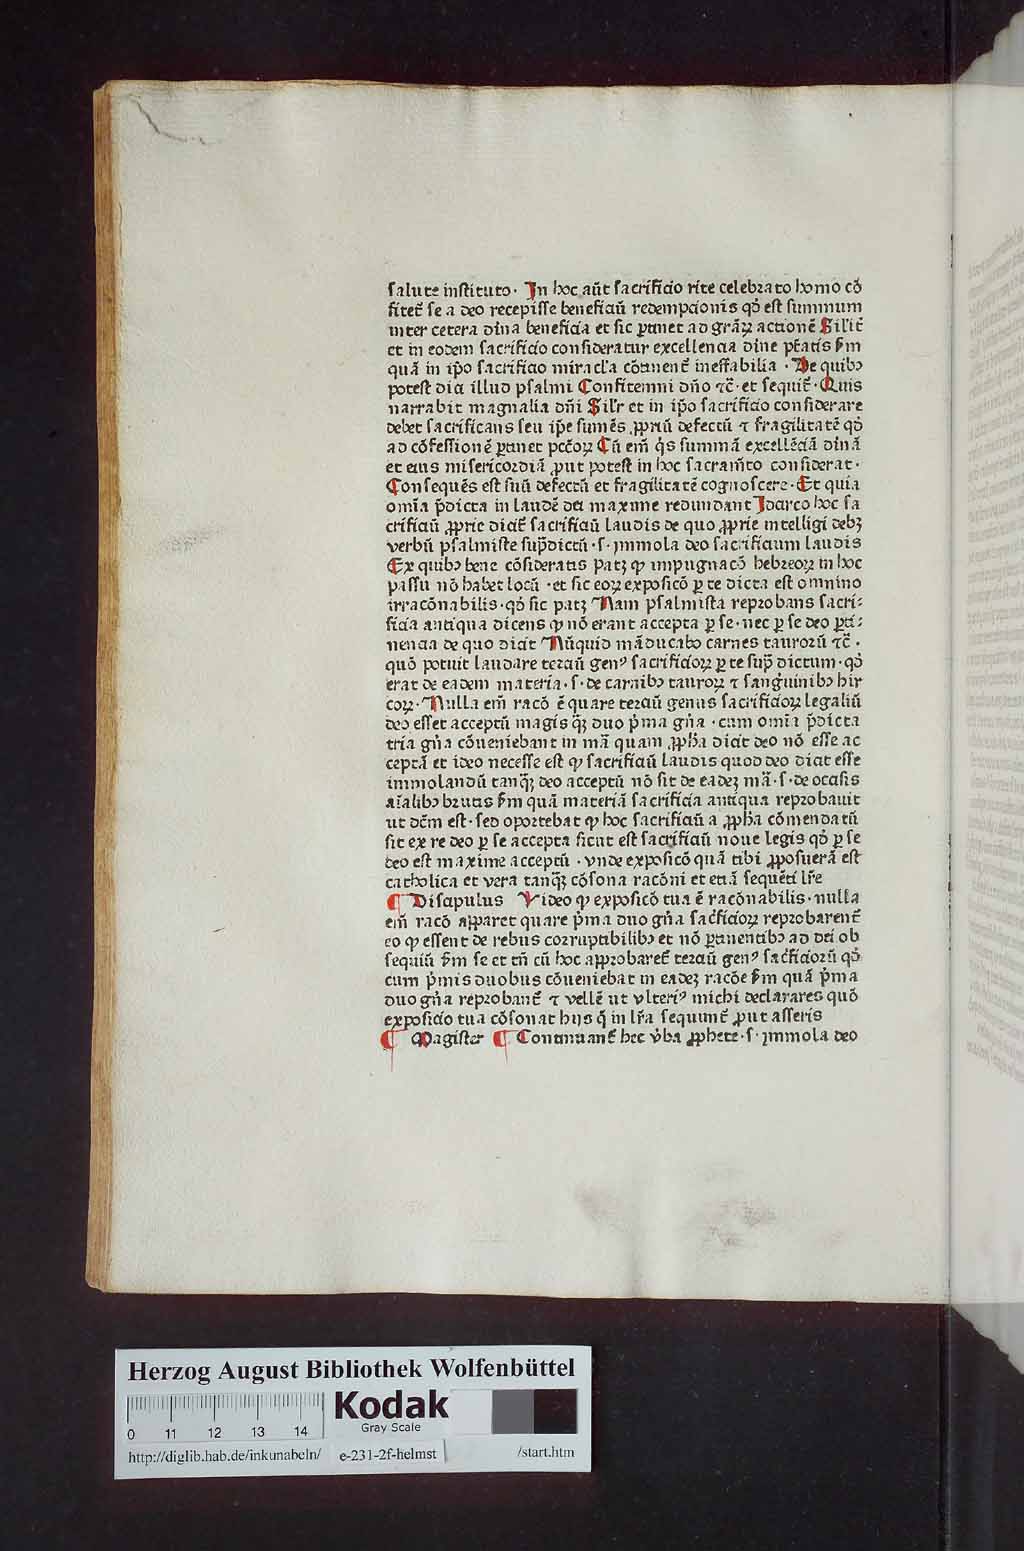 salute instituto· In hoc aūt sacrificio rite celebrato homo cō
fitet̄ se a deo recepisse beneficiū redempcionis qd̄ est summum
inter cetera diīna beneficia et sic ꝑtinet ad grāꝝ actionē Silit̄
et in eodem sacrificio consideratur excellencia diīne ptātis ẜm
quā in ip̄o sacrificio miracl'a cōtinent̄ ineffabilia · De quibꝯ
potest dici illud psalmi Confitemni dn̄o ⁊c̄· et sequit̄· Quis
narrabit magnalia dn̄i Sil'r et in ip̄o sacrificio considerare
debet sacrificans seu ip̄e sumēs ꝓpriū defectū ⁊ fragilitatē qd̄
ad cōfessionē ꝑtinet pctōꝝ Cū em̄ q̇s summā excellēciā diīnā
et eius misericordiā ꝓut potest in hoc sacram̄to considerat·
Consequēs est suū defectū et fragilitatē cognoscere· Et quia
omīa p̄dicta in laudē dei maxime redundant Idcirco hoc sa
crificiū ꝓprie dicit̄ sacrificiū laudis de quo ꝓprie intelligi debꝫ
verbū psalmiste sup̄dictū · s· ymmola deo sacrificium laudis
Ex quibꝯ bene cōsideratis patꝫ ꝙ impugnacō hebreoꝝ in hoc
passu nō habet locū · et sic eoꝝ exposicō ꝑ te dicta est omnino
irracōnabilis· qd̄ sic patꝫ Nam psalmista reprobans sacri⸗
ficia antiqua dicens ꝙ nō erant accepta ꝑ se· nec ꝑ se deo ꝑti⸗
nencia de quo dicit Nūquid māducabo carnes tauroꝝ ⁊c̄·
quō potuit laudare terciū genꝰ sacrificioꝝ ꝑ te sup̄ dictum · qd̄
erat de eadem materia· s· de carnibꝯ tauroꝝ ⁊ sanguinibꝯ hir
coꝝ· Nulla em̄ racō ē quare terciū genus sacrificioꝝ legaliū
deo esset acceptū magis qꝫ duo p̄ma gn̄a · cum omīa p̄dicta
tria gn̄a cōueniebant in mā quam ꝓph̄a dicit deo nō esse ac
ceptā et ideo necesse est ꝙ sacrificiū laudis quod deo dicit esse
immolandū tanqꝫ deo acceptū nō sit de eadeꝫ mā· s· de occisis
aīalibꝯ brutis ẜm quā materiā sacrificia antiqua reprobauit
ut dc̄m est· sed oportebat ꝙ hoc sacrificiū a ꝓph̄a cōmendatū
sit ex re deo ꝑ se accepta sicut est sacrificiū noue legis qd̄ ꝑ se
deo est maxime acceptū · vnde exposicō quā tibi ꝓposuerā est
catholica et vera tanqꝫ cōsona racōni et etiā sequēti lr̄e
¶ Discipulus Video ꝙ exposicō tua ē racōnabilis· nulla
em̄ racō apparet quare p̄ma duo gn̄a sacrificioꝝ reprobarent̄
eo ꝙ essent de rebus corruptibilibꝯ et nō ꝑtinentibꝯ ad dei ob
sequiū ẜm se et tn̄ cū hoc approbaret̄ terciū genꝰ sacrificiorū qd̄
cum p̄mis duobus cōueniebat in eadeꝫ racōe ẜm quā p̄ma
duo gn̄a reprobant̄ ⁊ vellē ut vlteriꝰ michi declarares quō
exposicio tua cōsonat hijs q̄ in lr̄a sequunt̄ ꝓut asseris
¶ Magister ¶ Continuant̄ hec v̄ba ꝓphete· s· ymmola deo
Herzog August Bibliothek Wolfenbüttel
Kodak
Gray Scale
0 11 12 13 14
http://diglib.hab.de/inkunabeln/ e-231-2f-helmst /start.htm